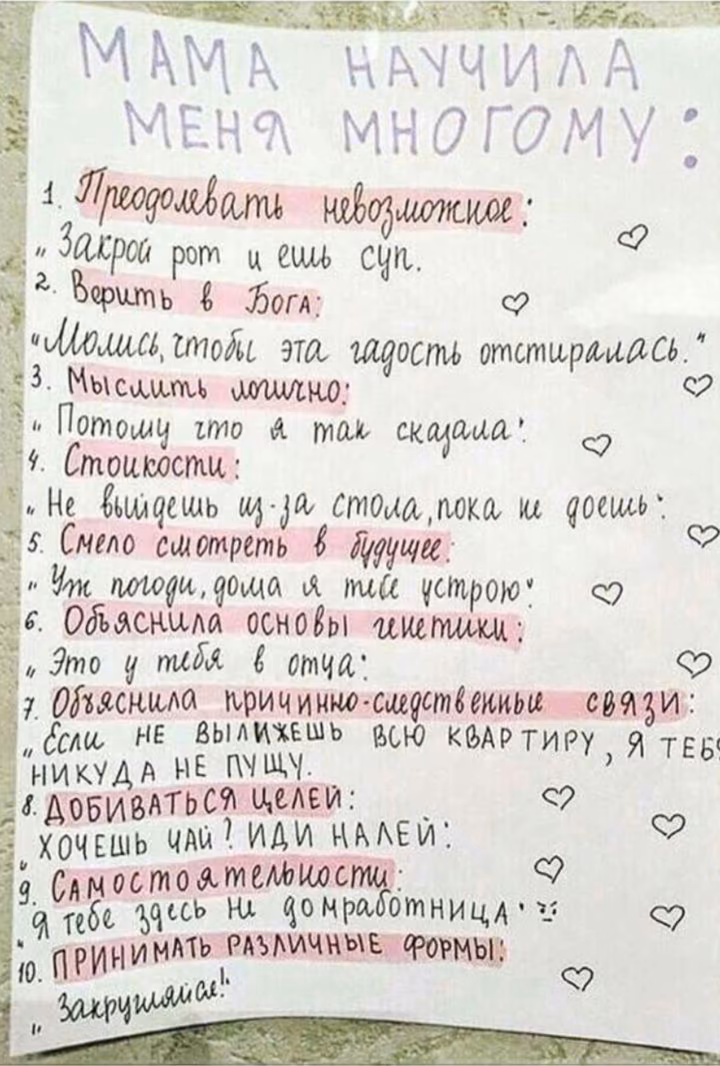 МАМА НАУЧИЛА
МЕНЯ МНОГОМУ:
1. Преодолевать невозможное:
„Закрой рот и ешь суп.
2. Верить в Бога:
“Молись, чтобы эта гадость отстиралась."
3. Мыслить логично:
„Потому что я так сказала":
4. Стойкости:
„Не выйдешь из-за стола, пока не доешь":
5. Смело смотреть в будущее:
„Уж погоди, дома я тебе устрою"
6. Объяснила основы генетики:
„Это у тебя в отца":
7. Объяснила причинно-следственные связи:
„Если НЕ ВЫЛИЖЕШЬ ВСЮ КВАРТИРУ, Я ТЕБЯ
НИКУДА НЕ ПУЩУ.
8. ДОБИВАТЬСЯ ЦЕЛЕЙ:
„ХОЧЕШЬ ЧАЙ? ИДИ НАЛЕЙ":
9. Самостоятельности:
„Я тебе здесь не домработница"
10. ПРИНИМАТЬ РАЗЛИЧНЫЕ ФОРМЫ:
„Закругляйся!"